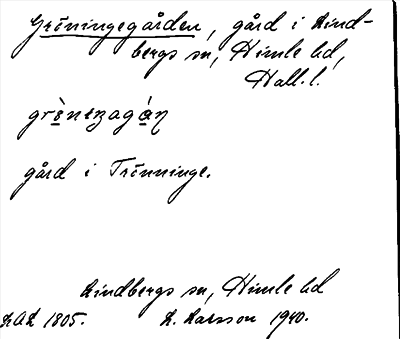 Gröningegården, gård i Lind-
bergs sn, Himle hd,
Hall. l.
grö̀nezagán
gård i Trönninge.
Lindbergs sn, Himle hd
LAL 1805. L. Larsson 1940.